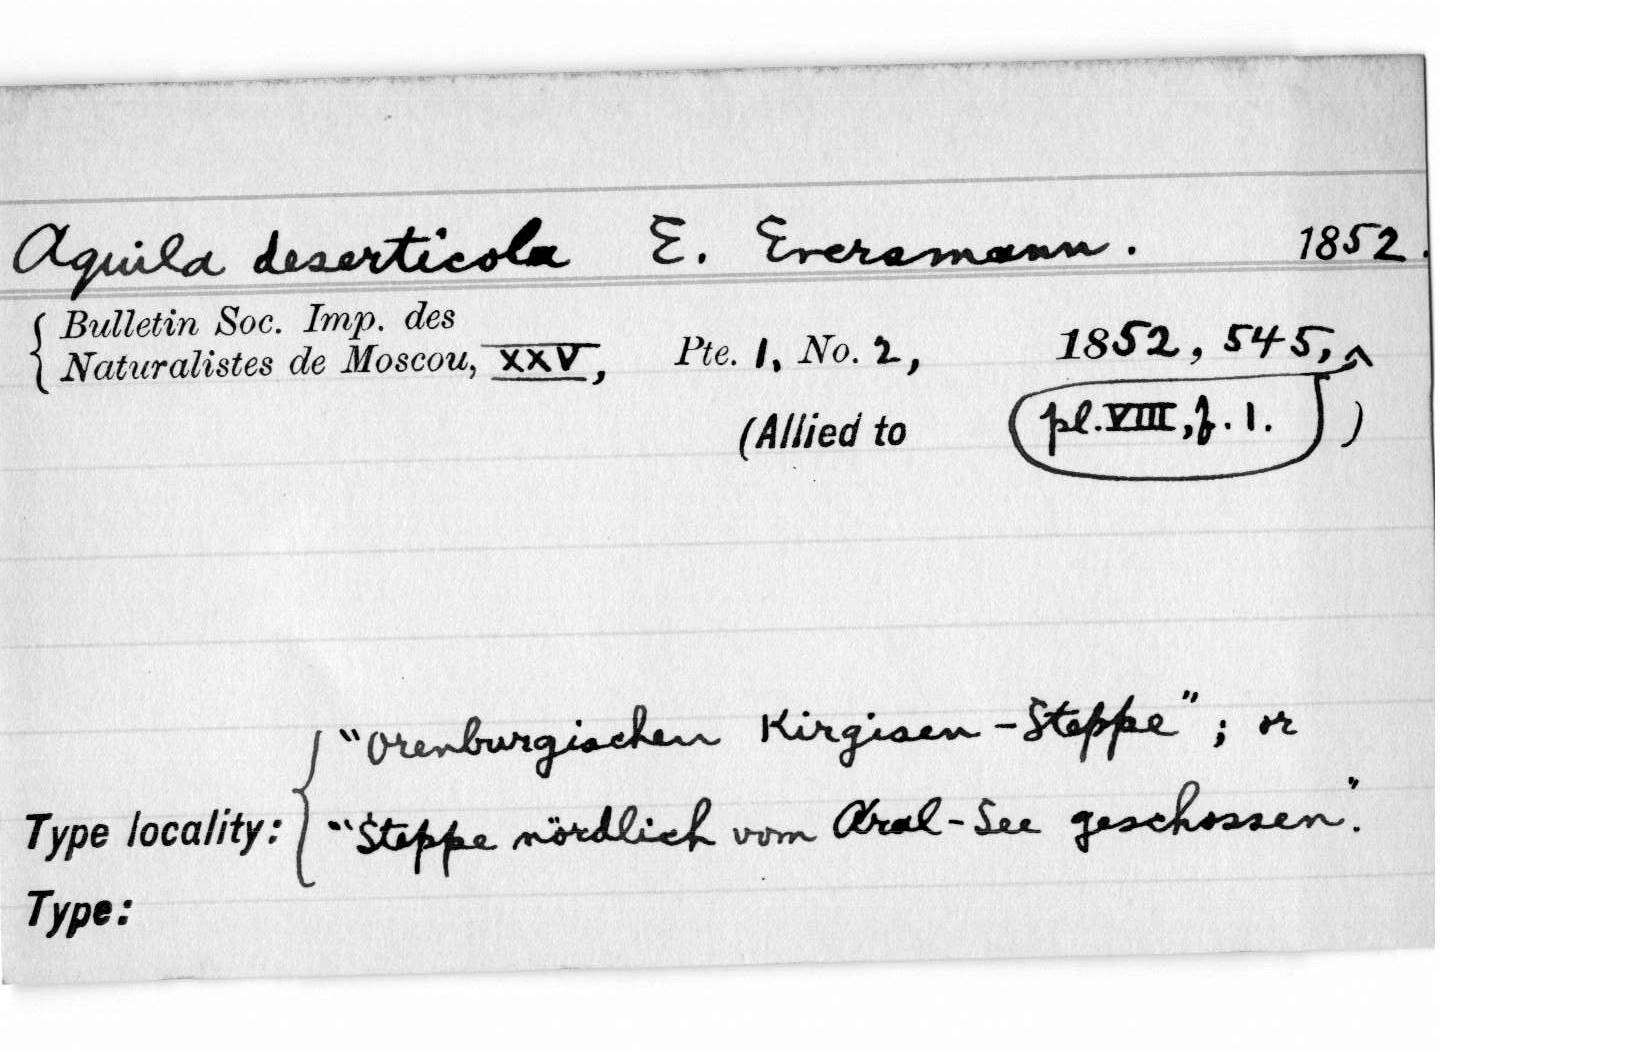 Aquila deserticola E. Eversmann. 1852.
Bulletin Soc. Imp. des
Naturalistes de Moscou, XXV, Pte. 1, No. 2, 1852, 545, ^
(Allied to pl. VIII, f. 1. )
"Orenburgischen Kirgisen-Steppe"; or
Type locality: "Steppe nördlich vom Aral-See geschossen".
Type: